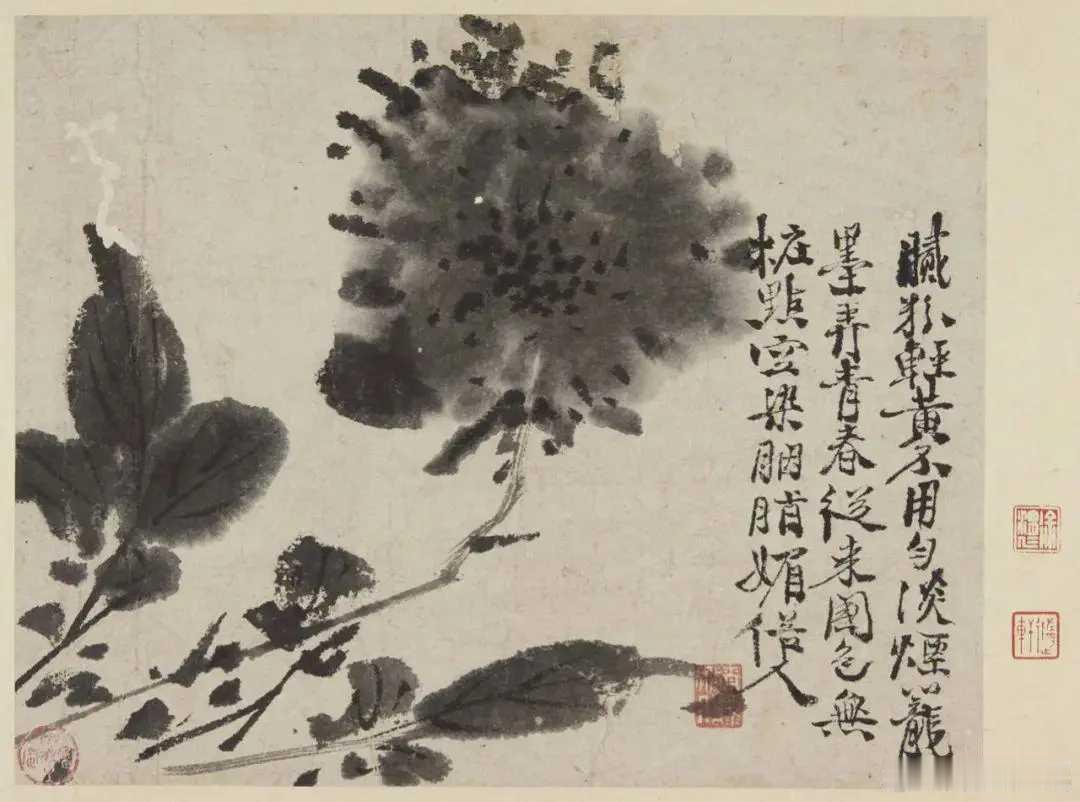 膩粉輕黃不用勻淡煙籠
墨弄青春從来國色無
粧點空染胭脂媚俗人